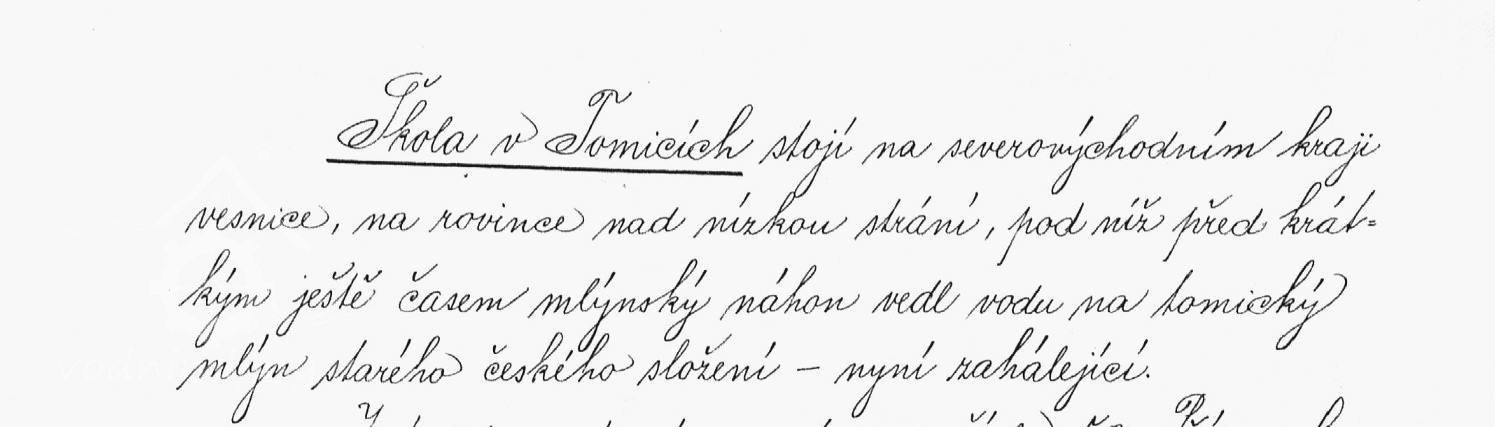 Škola v Tomicích stojí na severovýchodním kraji
vesnice, na rovince nad nízkou strání, pod níž před krát=
kým ještě časem mlýnský náhon vedl vodu na tomický
mlýn starého českého složení – nyní zahálející.